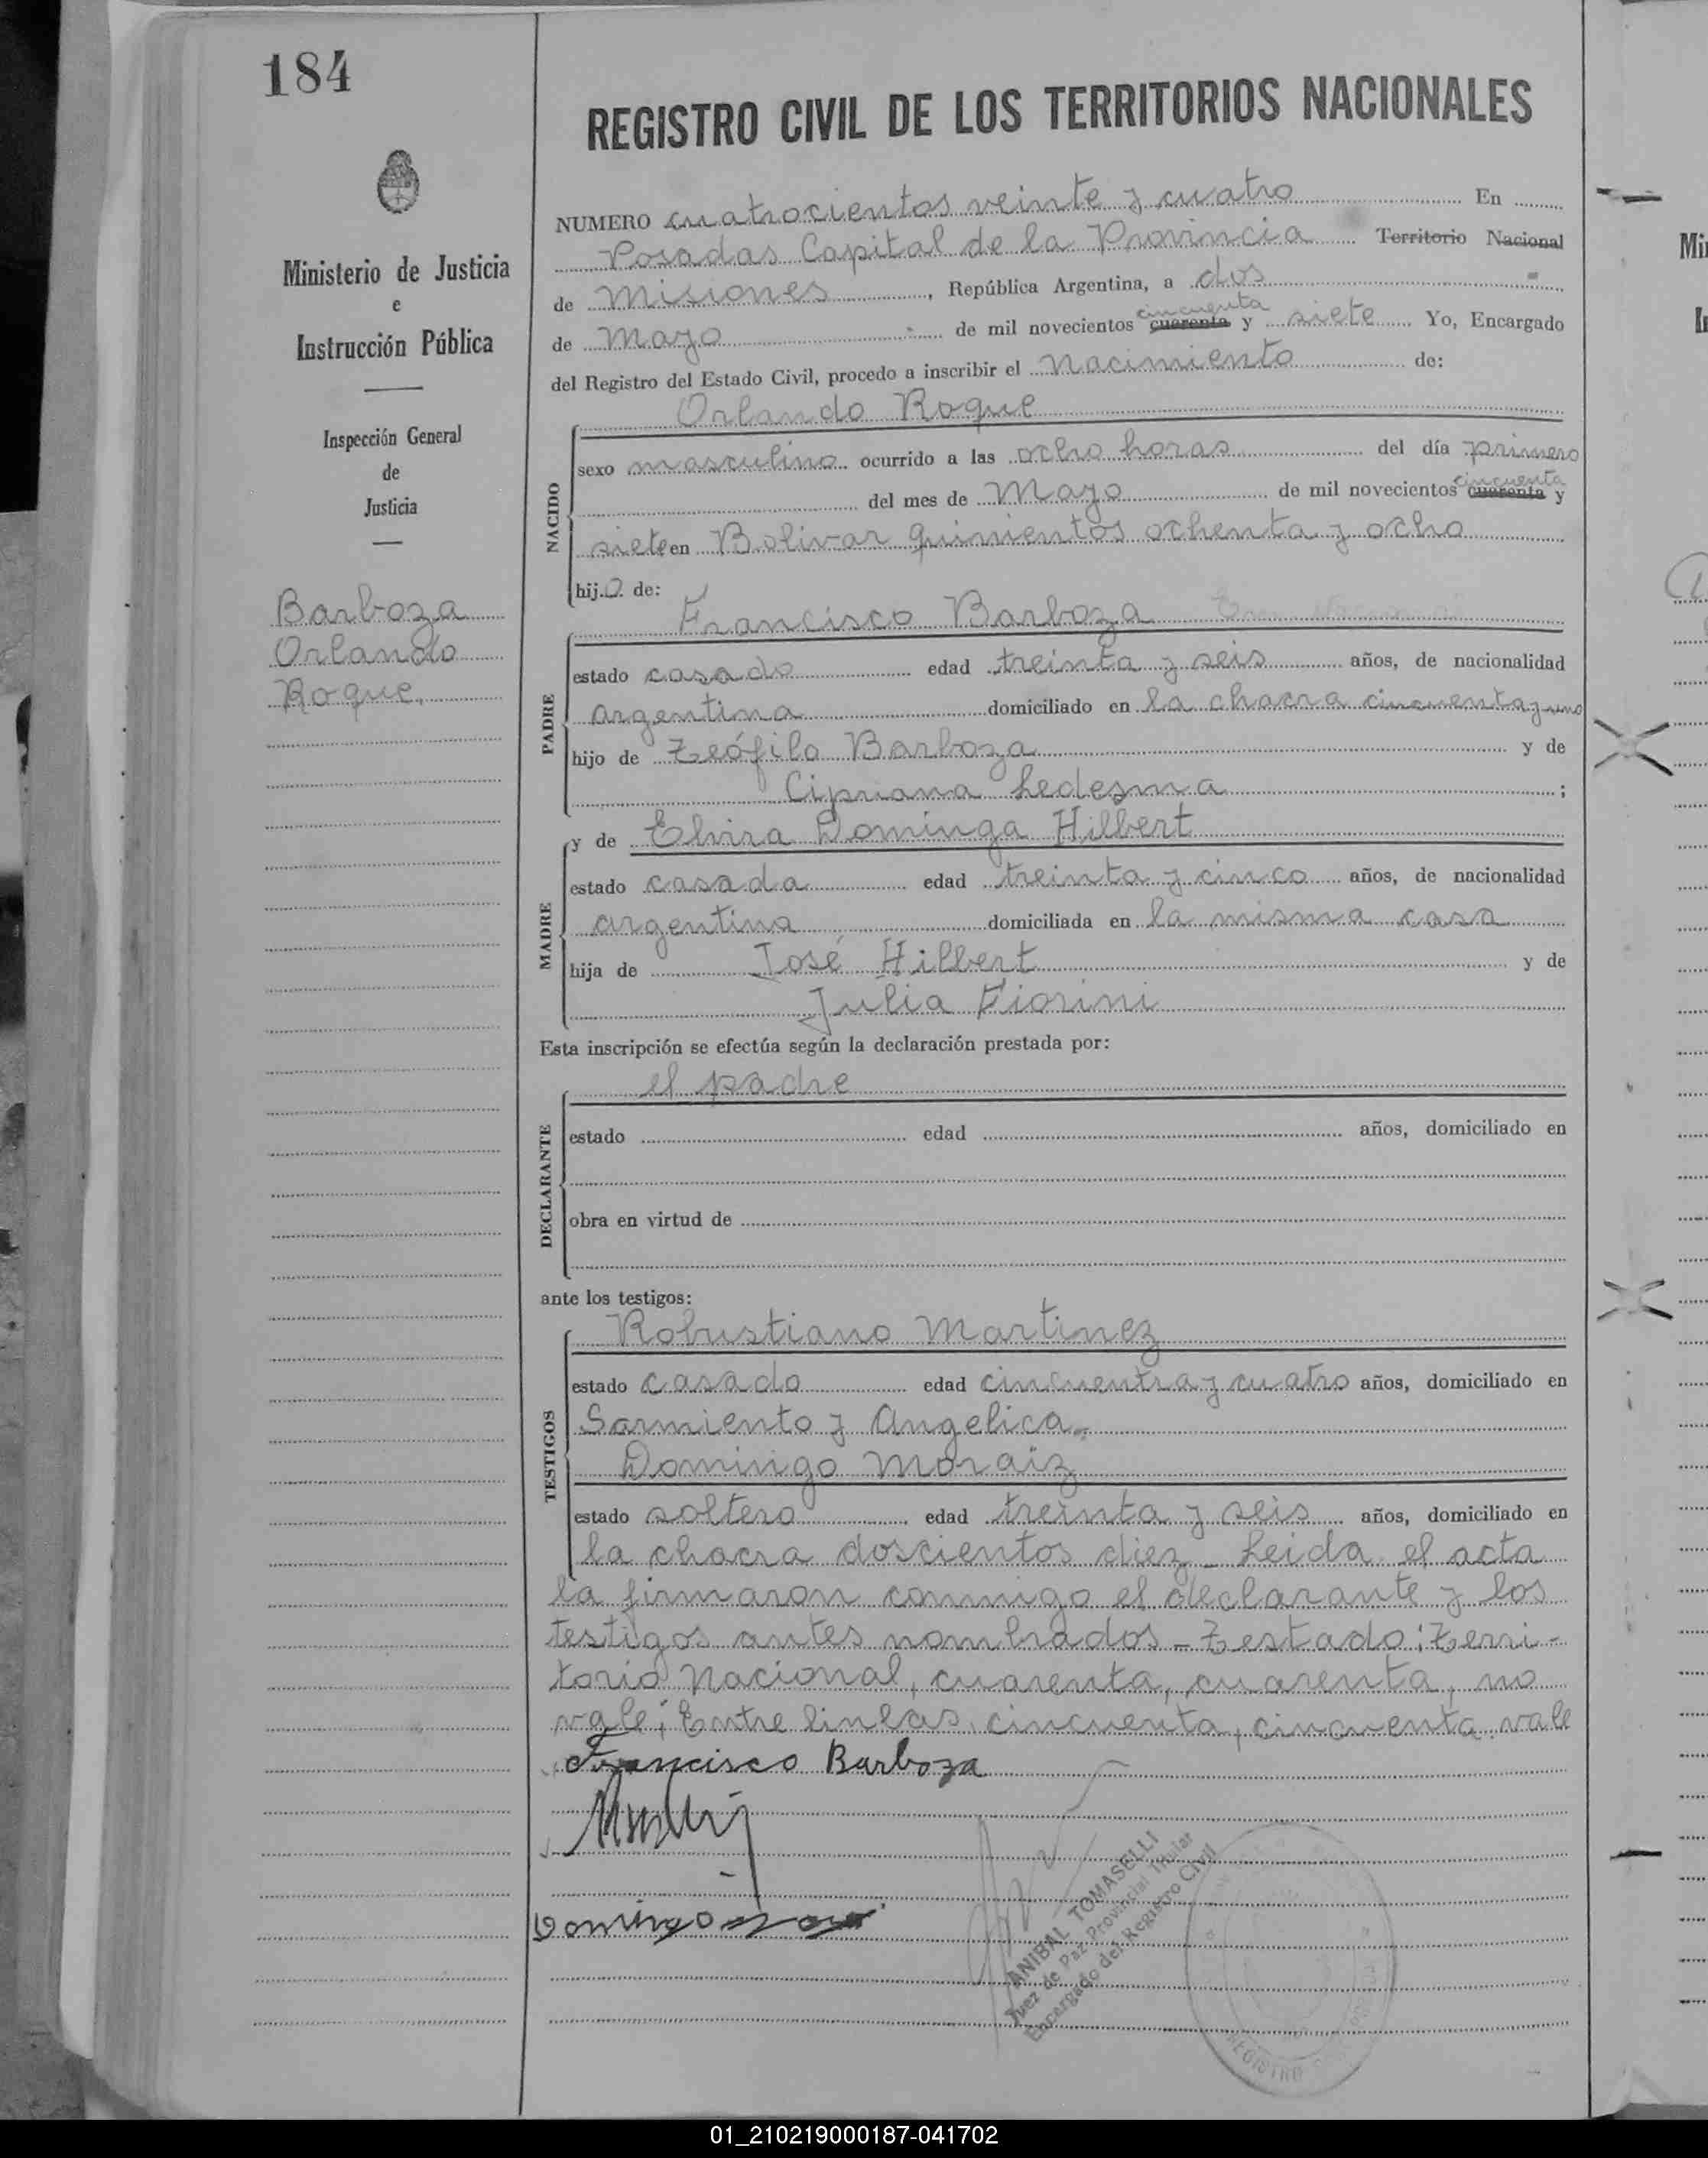 184
REGISTRO CIVIL DE LOS TERRITORIOS NACIONALES
Ministerio de Justicia
e
Instrucción Pública
Inspección General
de
Justicia
Barboza
Orlando
Roque.
NUMERO cuatrocientos veinte y cuatro En
Posadas Capital de la Provincia Territorio Nacional
de Misiones, República Argentina, a dos
cincuenta
de Mayo de mil novecientos cuarenta y siete Yo, Encargado
del Registro del Estado Civil, procedo a inscribir el Nacimiento de:
Orlando Roque
NACIDO
sexo masculino ocurrido a las ocho horas del día primero
cincuenta
del mes de Mayo de mil novecientos cuarenta y
siete en Bolivar quinientos ochenta y ocho
hijo de:
Francisco Barboza
PADRE
estado casado edad treinta y seis años, de nacionalidad
argentina domiciliado en la chacra cincuenta y uno
hijo de Teófilo Barboza y de
Cipriana Ledesma ;
y de Elvira Dominga Hilbert
MADRE
estado casada edad treinta y cinco años, de nacionalidad
argentina domiciliada en la misma casa
hija de José Hilbert y de
Julia Fiorini
Esta inscripción se efectúa según la declaración prestada por:
el padre
DECLARANTE
estado edad años, domiciliado en
obra en virtud de
ante los testigos:
Robustiano Martinez
TESTIGOS
estado casado edad cincuenta y cuatro años, domiciliado en
Sarmiento y Angelica.
Domingo Moraiz
estado soltero edad treinta y seis años, domiciliado en
la chacra doscientos diez - Leida el acta
la firmaron conmigo el declarante y los
testigos antes nombrados - Testado: Terri-
torio Nacional, cuarenta, cuarenta, no
vale; Entre lineas cincuenta, cincuenta vale
Francisco Barboza
Domingo
ANIBAL TOMASELLI
Juez de Paz Provincial Titular
Encargado del Registro Civil
REGISTRO
01_210219000187-041702